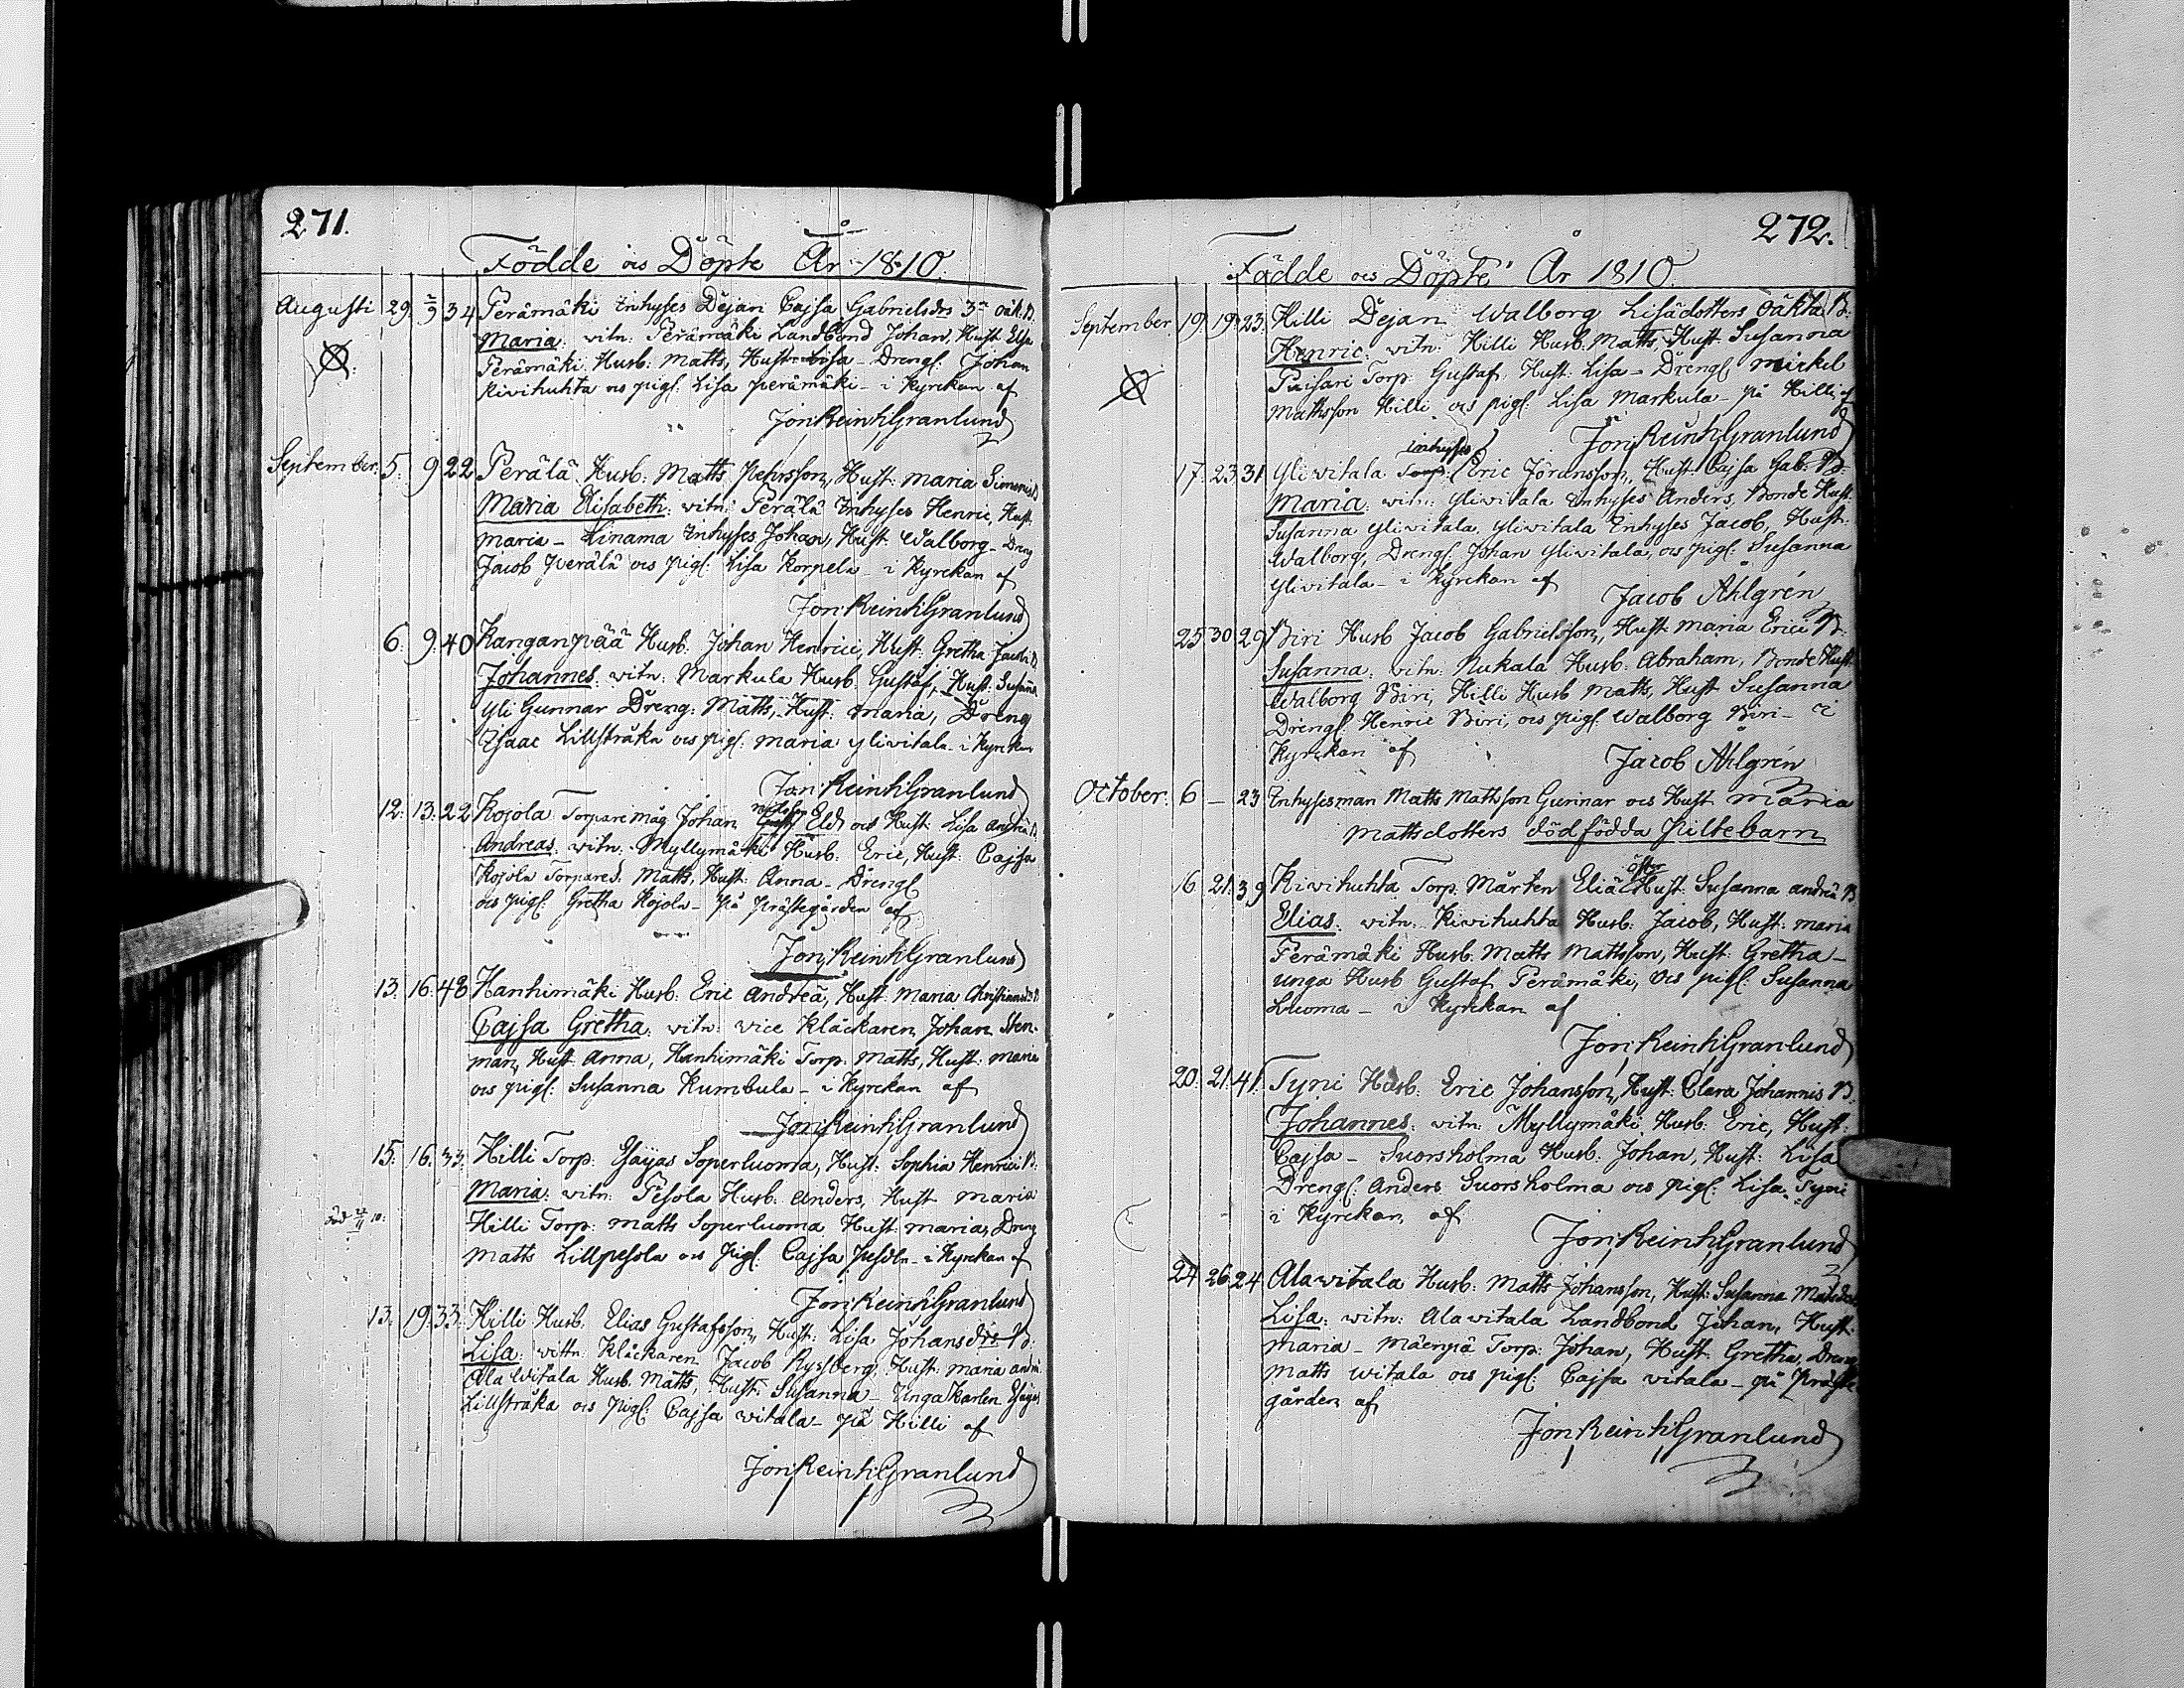 271.
Födde ocs Döpte År 1810.
Augusti 29 2/9 34 Perämäki Inhyses Dejan Cajsa Gabrielsdrs 3ie oäk. B.
Maria: vitn: Perämäki Landbond Johan, Hust Elsa
Perämäki Husb: Matts, Hust: Lisa - Drengs: Johan
Kivihuhta ocs pigs: Lisa perämäki - i Kyrckan af
Jon: Reinh: Granlund
September. 5. 9 22 Perälä Husb: Matts Pehrsson, Hust: Maria Simonis B
Maria Elisabeth: vitn: Perälä Inhyses Henric, Hust.
Maria - Linama Inhyses Johan, Hust: Walborg - Dreng
Jacob Perälä ocs pigs: Lisa Korpela - i Kyrckan af
Jon: Reinh: Granlund
6. 9. 40 Kanganpää Husb. Johan Henrici, Hust: Gretha Jacobi B
Johannes: vitn: Markula Husb: Gustaf, Hust: Susanna
Yli Gunnar Dreng: Matts, Hust: Maria, Dreng
Isaac Lillstråka ocs pigs: Maria Ylivitala - i Kyrckan
Jon: Reinh: Granlund
12. 13. 22 Kojola Torpare måg Johan Eld ocs Hust: Lisa Andreä B
Andreas: vitn: Myllymäki Husb: Eric, Hust: Cajsa
Kojola Torpare S: Matts, Hust: Anna - Drengs
ocs pigs: Gretha Kojola - på Prästegården af
Jon: Reinh: Granlund
13. 16. 48 Hanhimäki Husb: Eric Andreä, Hust: Maria Christiansdr B
Cajsa Gretha: vitn: vice Klåckaren Johan Sten-
man, Hust Anna, Hanhimäki Torp: Matts, Hust: Maria
ocs pigs: Susanna Kumbula - i Kyrckan af
Jon: Reinh: Granlund
15. 16. 33. Hilli Torp: Esaias Soperluoma, Hust: Sophia Henrici B:
Maria: vitn: Pesola Husb: Anders, Hust Maria
död 22/11 10: Hilli Torp: Matts Soperluoma Hust: Maria, Dreng
Matts Lillpesola ocs Pigs: Cajsa Pesola - i Kyrckan af
Jon: Reinh: Granlund
13. 19. 33. Hilli Husb: Elias Gustafsson, Hust: Lisa Johansdrs B:
Lisa: vittn: Klåckaren Jacob Rysberg, Hust: Maria
Ala Witala Husb. Matts, Hust: Susanna - Unga Karlen Esaias
Lillstråka ocs pigs: Cajsa Witala - på Hilli af
Jon: Reinh: Granlund
272.
Födde ocs Döpte År 1810.
September. 19. 19. 23. Hilli Dejan Walborg Lisädotters Oäkta B:
Henric: vitn: Hilli Husb. Matts, Hust Susanna
Torp: Gustaf, Hust: Lisa - Drengs Mickel
Mathsson Hilli ocs pigs: Lisa Markula - på Hilli af
Jon: Reinh: Granlund
inhyses
17. 23 31 Ylivitala Torp: Eric Jöransson, Hust: Cajsa Gab: B:
Maria: vitn: Ylivitala Inhyses Anders, Bonde Hust:
Susanna Ylivitala, Ylivitala Inhyses Jacob, Hust:
Walborg, Drengs: Johan Ylivitala, ocs pigs: Susanna
Ylivitala - i Kyrckan af
Jacob Åhlgrén
25 30 29 Biri Husb Jacob Gabrielsson, Hust: Maria Erici B.
Susanna: vitn: Nukala Husb: Abraham, Bonde Hust
Walborg Biri, Hilli Husb Matts, Hust Susanna
Drengs: Henric Biri, ocs pigs: Walborg Biri - i
Kyrckan af
Jacob Åhlgrén
October. 6 - 23 Inhysesman Matts Mattsson Gunnar ocs Hust Maria
Mattsdotters död födda Piltebarn
16. 21. 39 Kivihuhta Torp. Mårten Eliä Hust: Susanna Andreä B
Elias: vitn: Kivihuhta Husb: Jacob, Hust: Maria
Perämäki Husb. Matts Mattsson, Hust: Gretha -
unga Husb Gustaf Perämäki, Ocs pigs: Susanna
Luoma - i Kyrckan af
Jon: Reinh: Granlund
20. 21. 41. Tyni Husb: Eric Johansson, Hust: Clara Johannis B.
Johannes: vitn: Myllymäki Husb: Eric, Hust:
Cajsa - Suorsholma Husb: Johan, Hust: Lisa
Drengs: Anders Suorsholma ocs pigs: Lisa Tyni
i Kyrckan af
Jon: Reinh: Granlund
24 26 24 Alavitala Husb: Matts Johansson, Hust: Susanna
Lisa: vitn: Alavitala Landbond Johan, Hust:
Maria - Mäenpä Torp: Johan, Hust: Gretha, Dreng
Matts Witala ocs pigs: Cajsa Vitala - på Präste
gården af
Jon: Reinh: Granlund